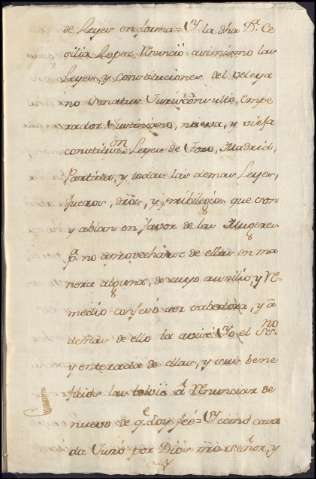 de Leyes en forma= Y la dha Da Ce
cilia Lopez Renunció asimismo las
Leyes, y constituciones del Veleya
no Senatus Consulto, Empe
rador Justiniano, nueva, y vieja
constituon Leyes de Toro, Madrid,
Partida, y todas las demas Leyes,
fueros, dros, y privilegios que son
y abian en favor de las Mugeres
p. no aprovecharse de ellas en ma
nera alguna, de cuyo auxilio, y Re
medio confesó ser sabedora, y a
demas de ello la avisé Yo el Sno
y enterada de ellas, y sus bene
ficios las bolvió a Renunciar de
nuevo de q. doy feé= Y como casa
da Juró por Dios nro señor, y